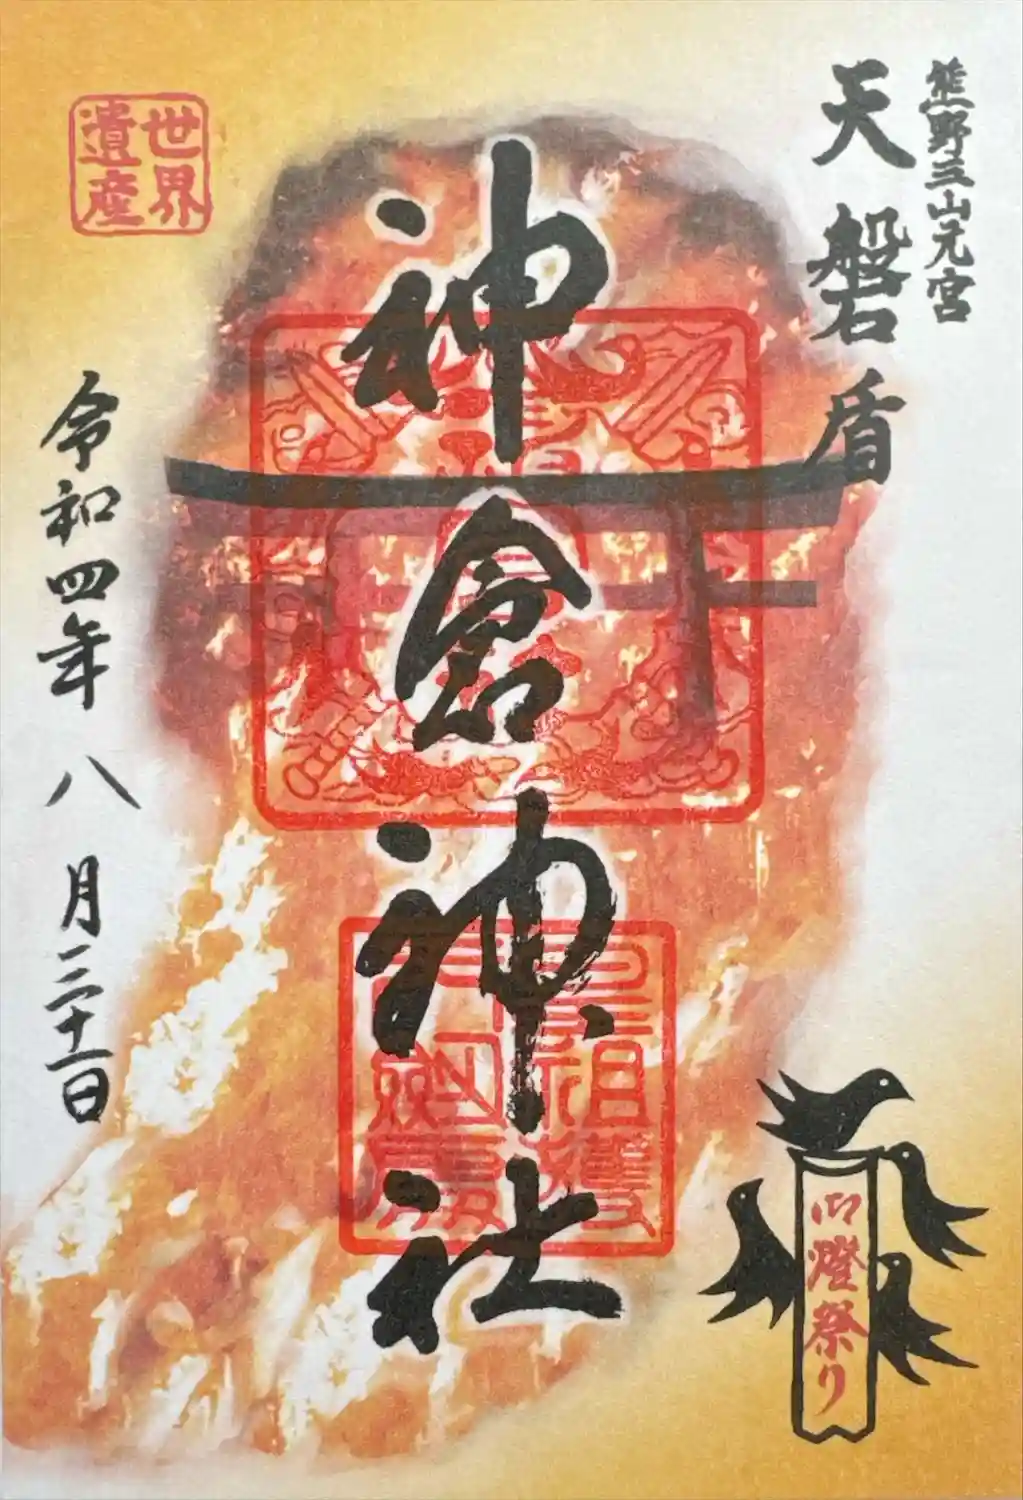 熊野三山元宮
天磐盾
神倉神社
世界
遺産
令和四年八月二十一日
御燈祭り